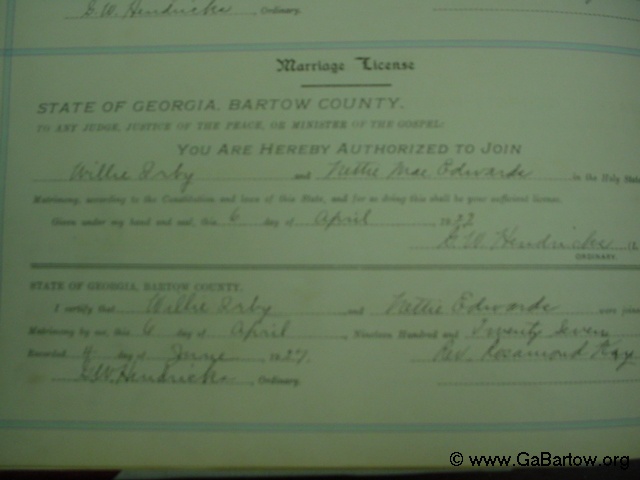 G.W. Hendricks, Ordinary.
Marriage License
STATE OF GEORGIA, BARTOW COUNTY.
TO ANY JUDGE, JUSTICE OF THE PEACE, OR MINISTER OF THE GOSPEL:
YOU ARE HEREBY AUTHORIZED TO JOIN
Willie Irby and Nettie Mae Edwards in the Holy State
Matrimony, according to the Constitution and laws of this State, and for so doing this shall be your sufficient license.
Given under my hand and seal, this 6 day of April 1927
G.W. Hendricks
ORDINARY.
STATE OF GEORGIA, BARTOW COUNTY.
I certify that Willie Irby and Nettie Edwards were joined
Matrimony by me, this 6 day of April, Nineteen Hundred and Twenty Seven
Recorded 9 day of June 1927. Rev. Rosamond Kay
G.W. Hendricks, Ordinary.
© www.GaBartow.org